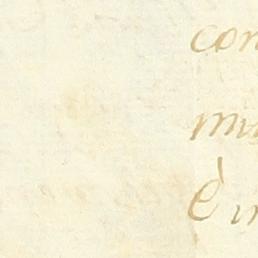 con
mu
è in